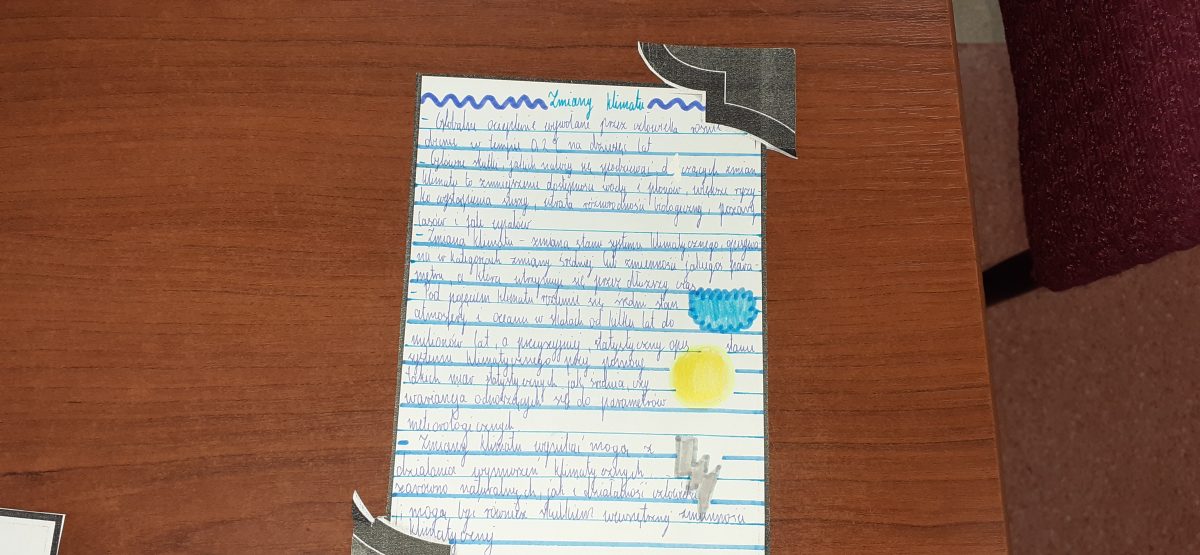 Zmiany klimatu
- Globalne ocieplenie wywołane przez człowieka rośnie
w tempie 0,2 na dziesięć lat
- Główne skutki jakich należy się spodziewać zmian
klimatu to zmniejszenie dostępności wody i plonów, większe ryzy-
ko wystąpienia suszy, utrata różnorodności biologicznej, pożary
lasów i fale upałów
- Zmiana klimatu - zmiana stanu systemu klimatycznego,
na w kategoriach zmiany średniej lub zmienności jakiegoś para-
metru, a która utrzymuje się przez dłuższy czas
- Pod pojęciem klimatu rozumie się średni stan
atmosfery i oceanu w skalach od kilku lat do
milionów lat, a precyzyjniej statystyczny opis stanu
systemu klimatycznego przy pomocy
takich miar statystycznych jak średnia, czy
wariancja odnoszących się do parametrów
meteorologicznych.
- Zmiany klimatu wynikać mogą z
działania wymuszeń klimatycznych
zarówno naturalnych, jak i działalność człowieka
mogą być również skutkiem wewnętrznej zmienności
klimatycznej